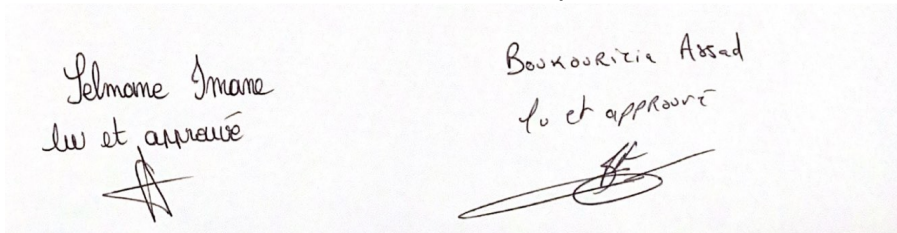 Selmane Imane
lu et approuvé
Boukourizia Assad
lu et approuvé